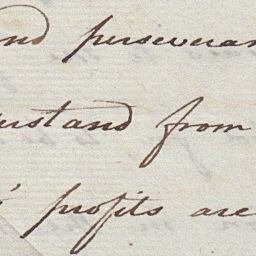 and perseveran
erstand from
' profits are